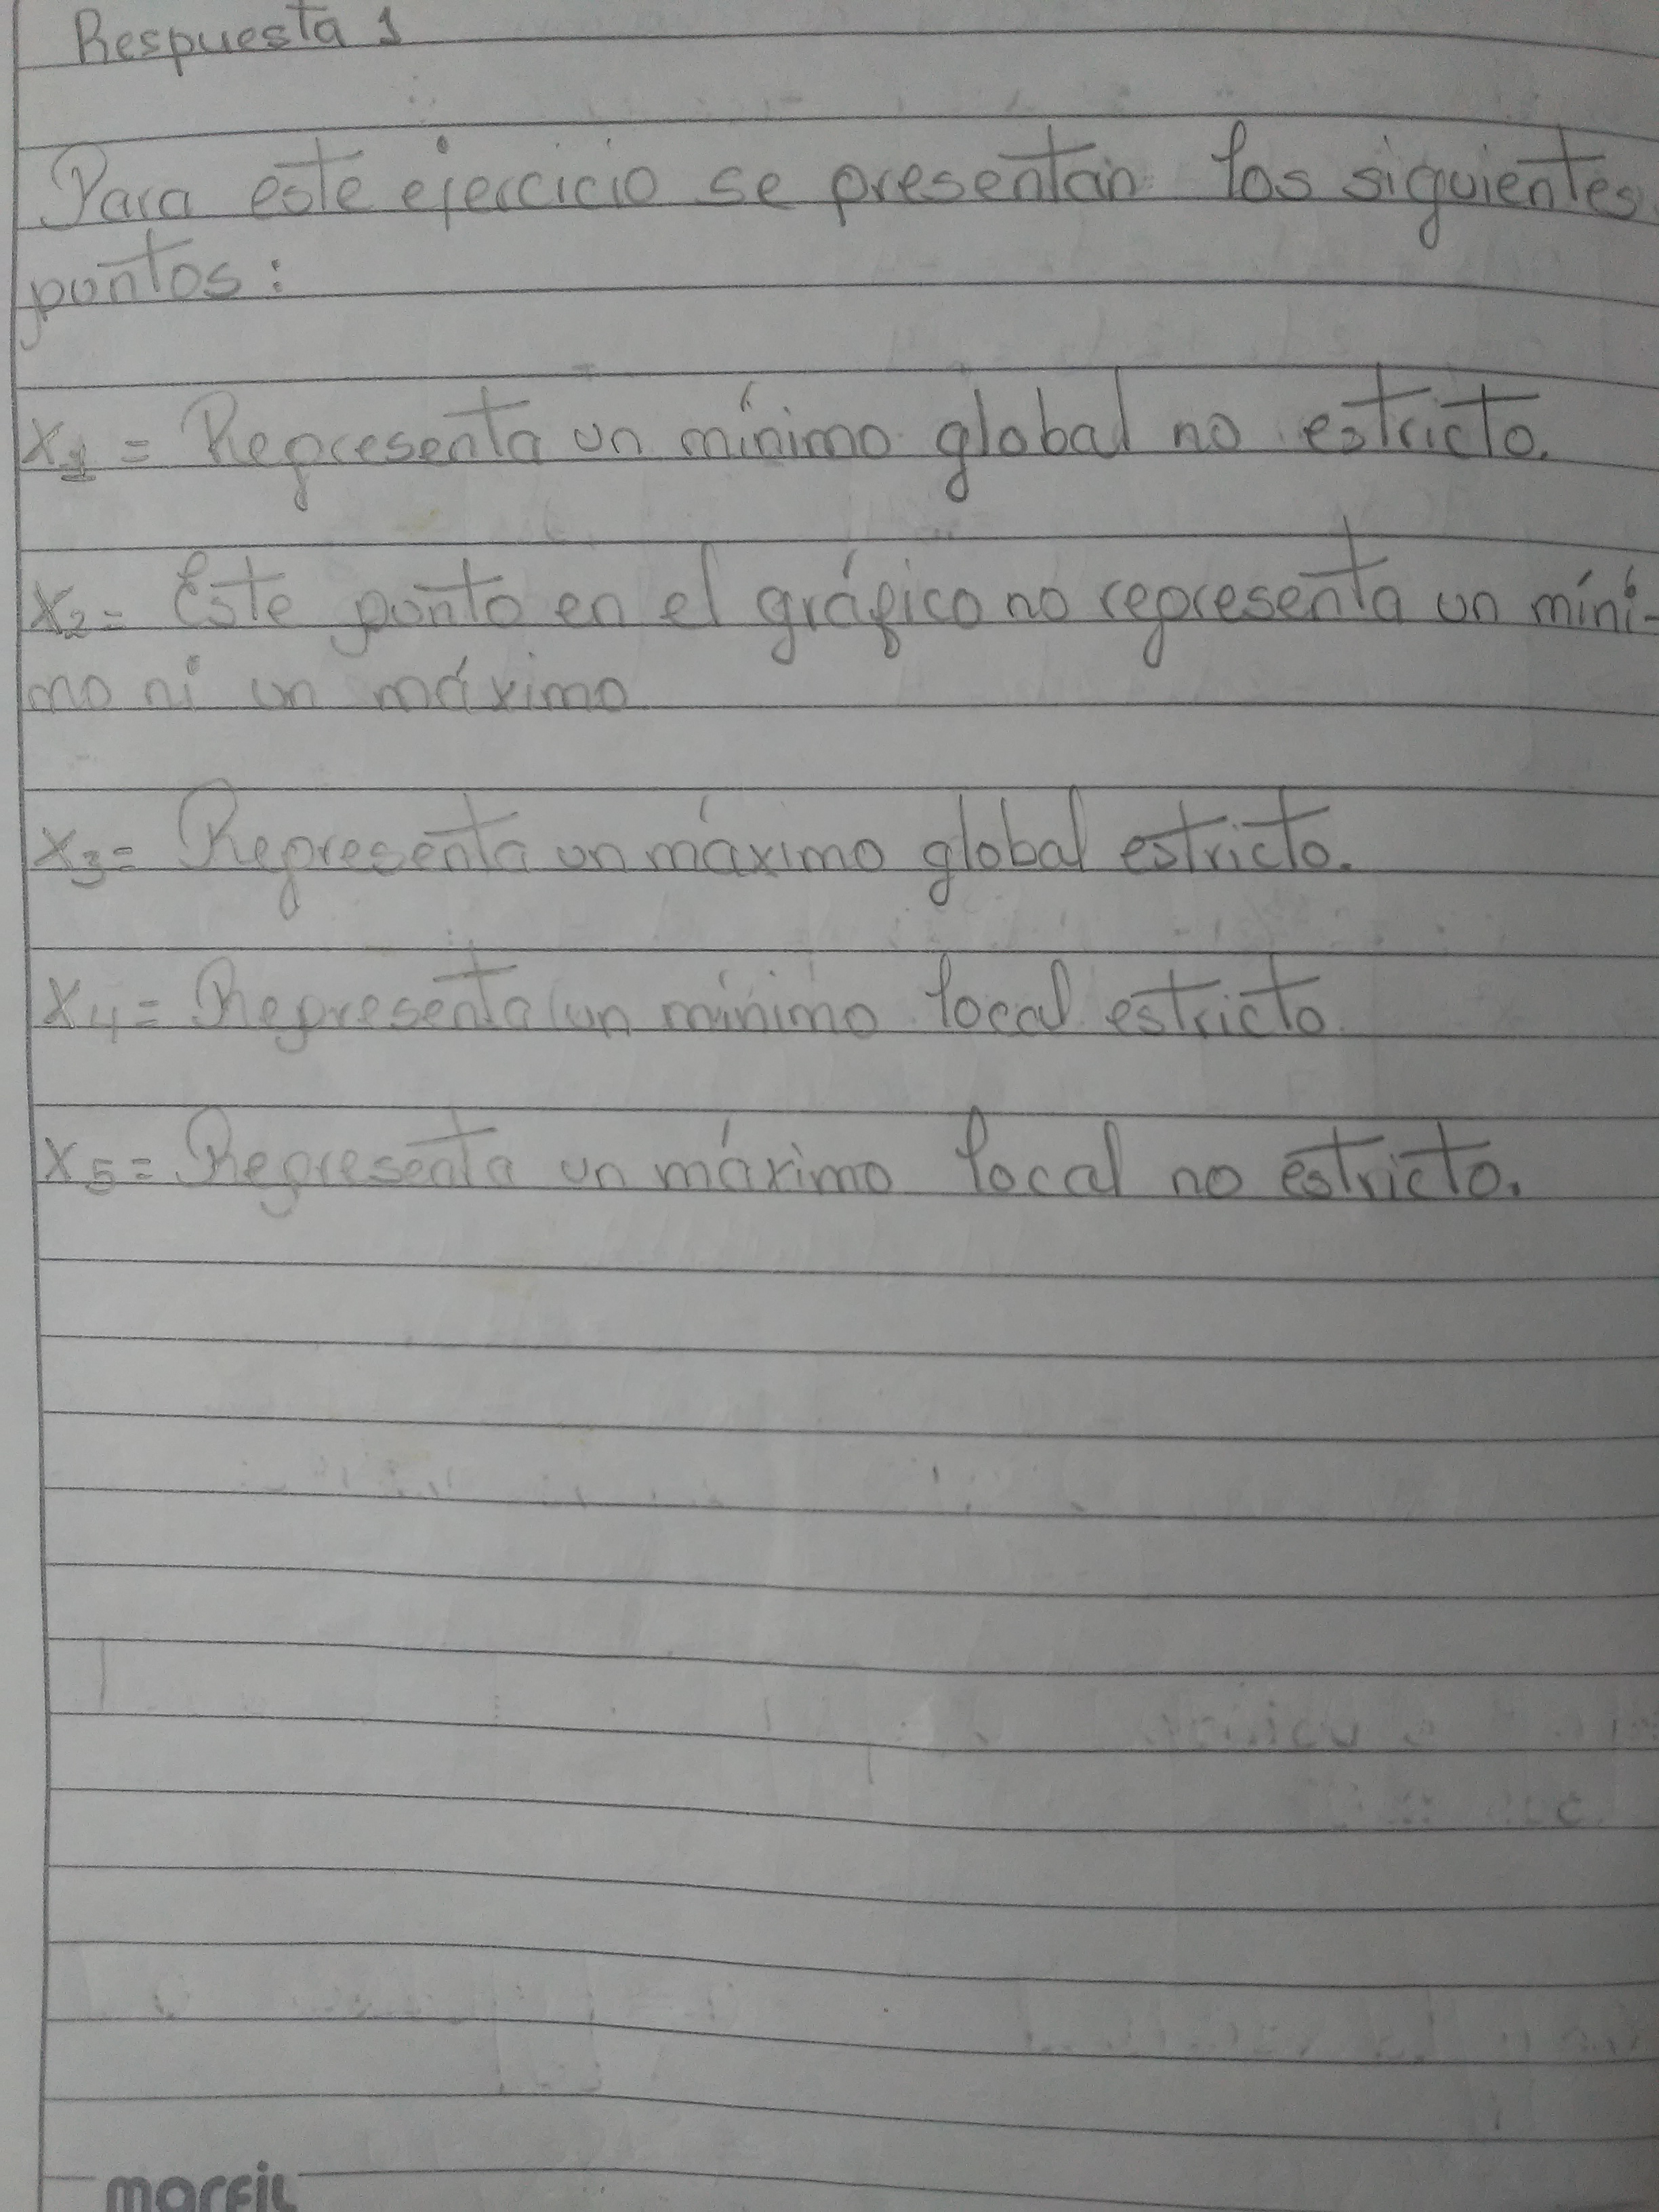 Respuesta 1
Para este ejercicio se presentan los siguientes
puntos:
x1 = Representa un mínimo global no estricto.
x2 = Este punto en el gráfico no representa un míni-
mo ni un máximo
x3 = Representa un máximo global estricto.
x4 = Representa un mínimo local estricto
x5 = Representa un máximo local no estricto.
marfil